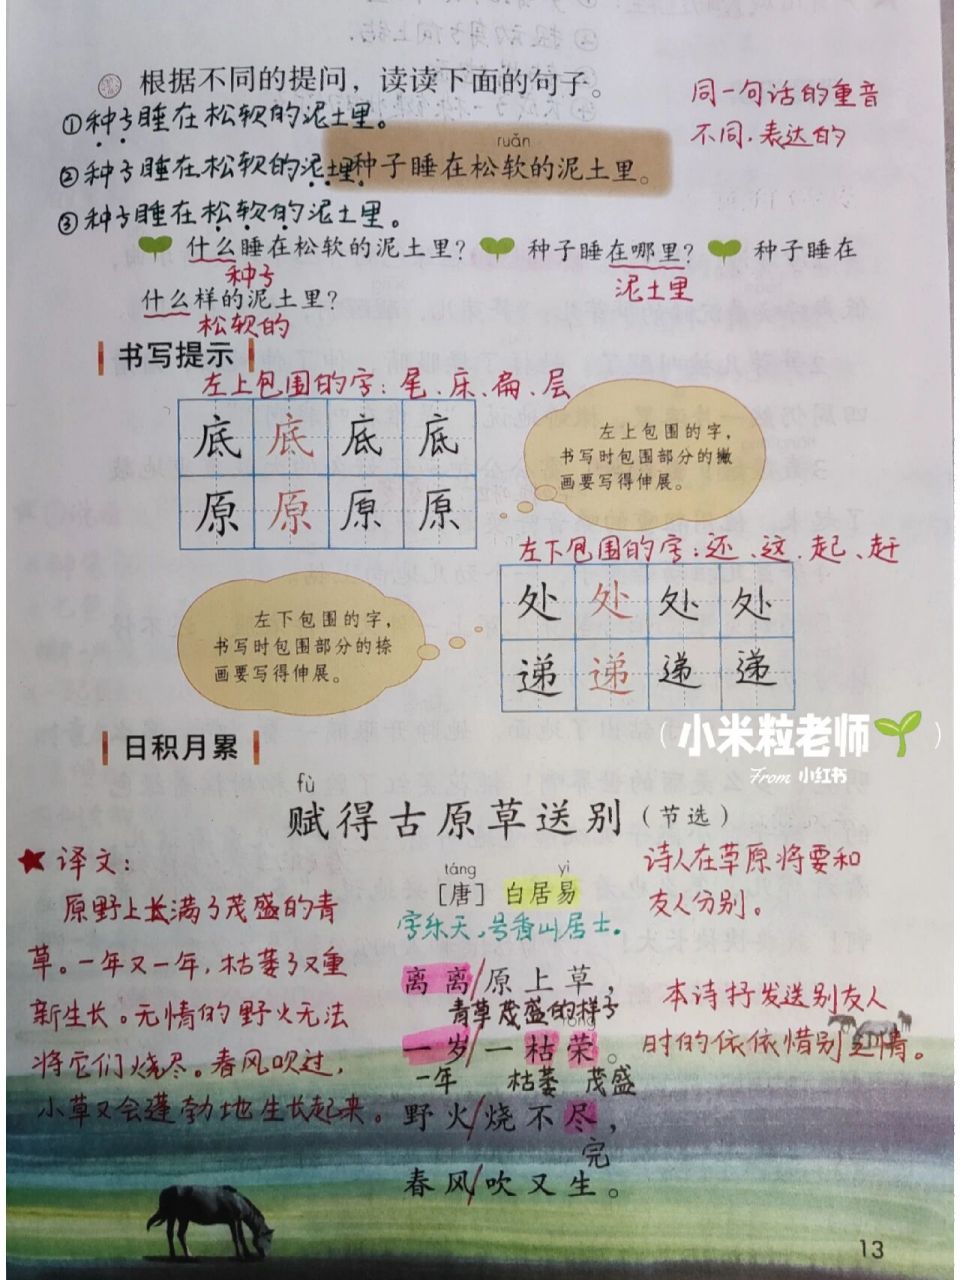 根据不同的提问，读读下面的句子。
同一句话的重音
不同.表达的
①种子睡在松软的泥土里。
②种子睡在松软的泥土里
ruǎn
种子睡在松软的泥土里。
③种子睡在松软的泥土里。
什么睡在松软的泥土里？ 种子睡在哪里？ 种子睡在
种子 泥土里
什么样的泥土里？
松软的
书写提示
左上包围的字：尾、床、扁、层
底 底 底 底
原 原 原 原
左上包围的字，
书写时包围部分的撇
画要写得伸展。
左下包围的字：还、这、起、赶
处 处 处 处
递 递 递 递
左下包围的字，
书写时包围部分的捺
画要写得伸展。
小米粒老师
From 小红书
日积月累
fù
赋得古原草送别（节选）
táng yì
［唐］白居易
字乐天,号香山居士。
离离/原上草，
青草茂盛的样子
róng
一岁/一枯荣。
一年 枯萎 茂盛
野火/烧不尽，
完
春风/吹又生。
译文：
原野上长满了茂盛的青
草。一年又一年,枯萎了又重
新生长。无情的野火无法
将它们烧尽。春风吹过,
小草又会蓬勃地生长起来。
诗人在草原将要和
友人分别。
本诗抒发送别友人
时的依依惜别之情。
13